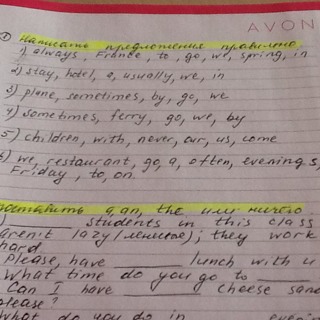 AVON
① Написать предложения правильно
1) always, France, to, go, we, spring, in
2) stay, hotel, a, usually, we, in
3) plane, sometimes, by, go, we
4) sometimes, ferry, go, we, by
5) children, with, never, our, us, come
6) we, restaurant, go, a, often, evenings,
Friday, to, on.
поставить a, an, the или ничего
) ____ students in this class
aren't lazy (ленивые); they work
hard
please, have ____ lunch with u
What time do you go to ____
Can I have ____ cheese sand
please?
What do you do in ____ evenin